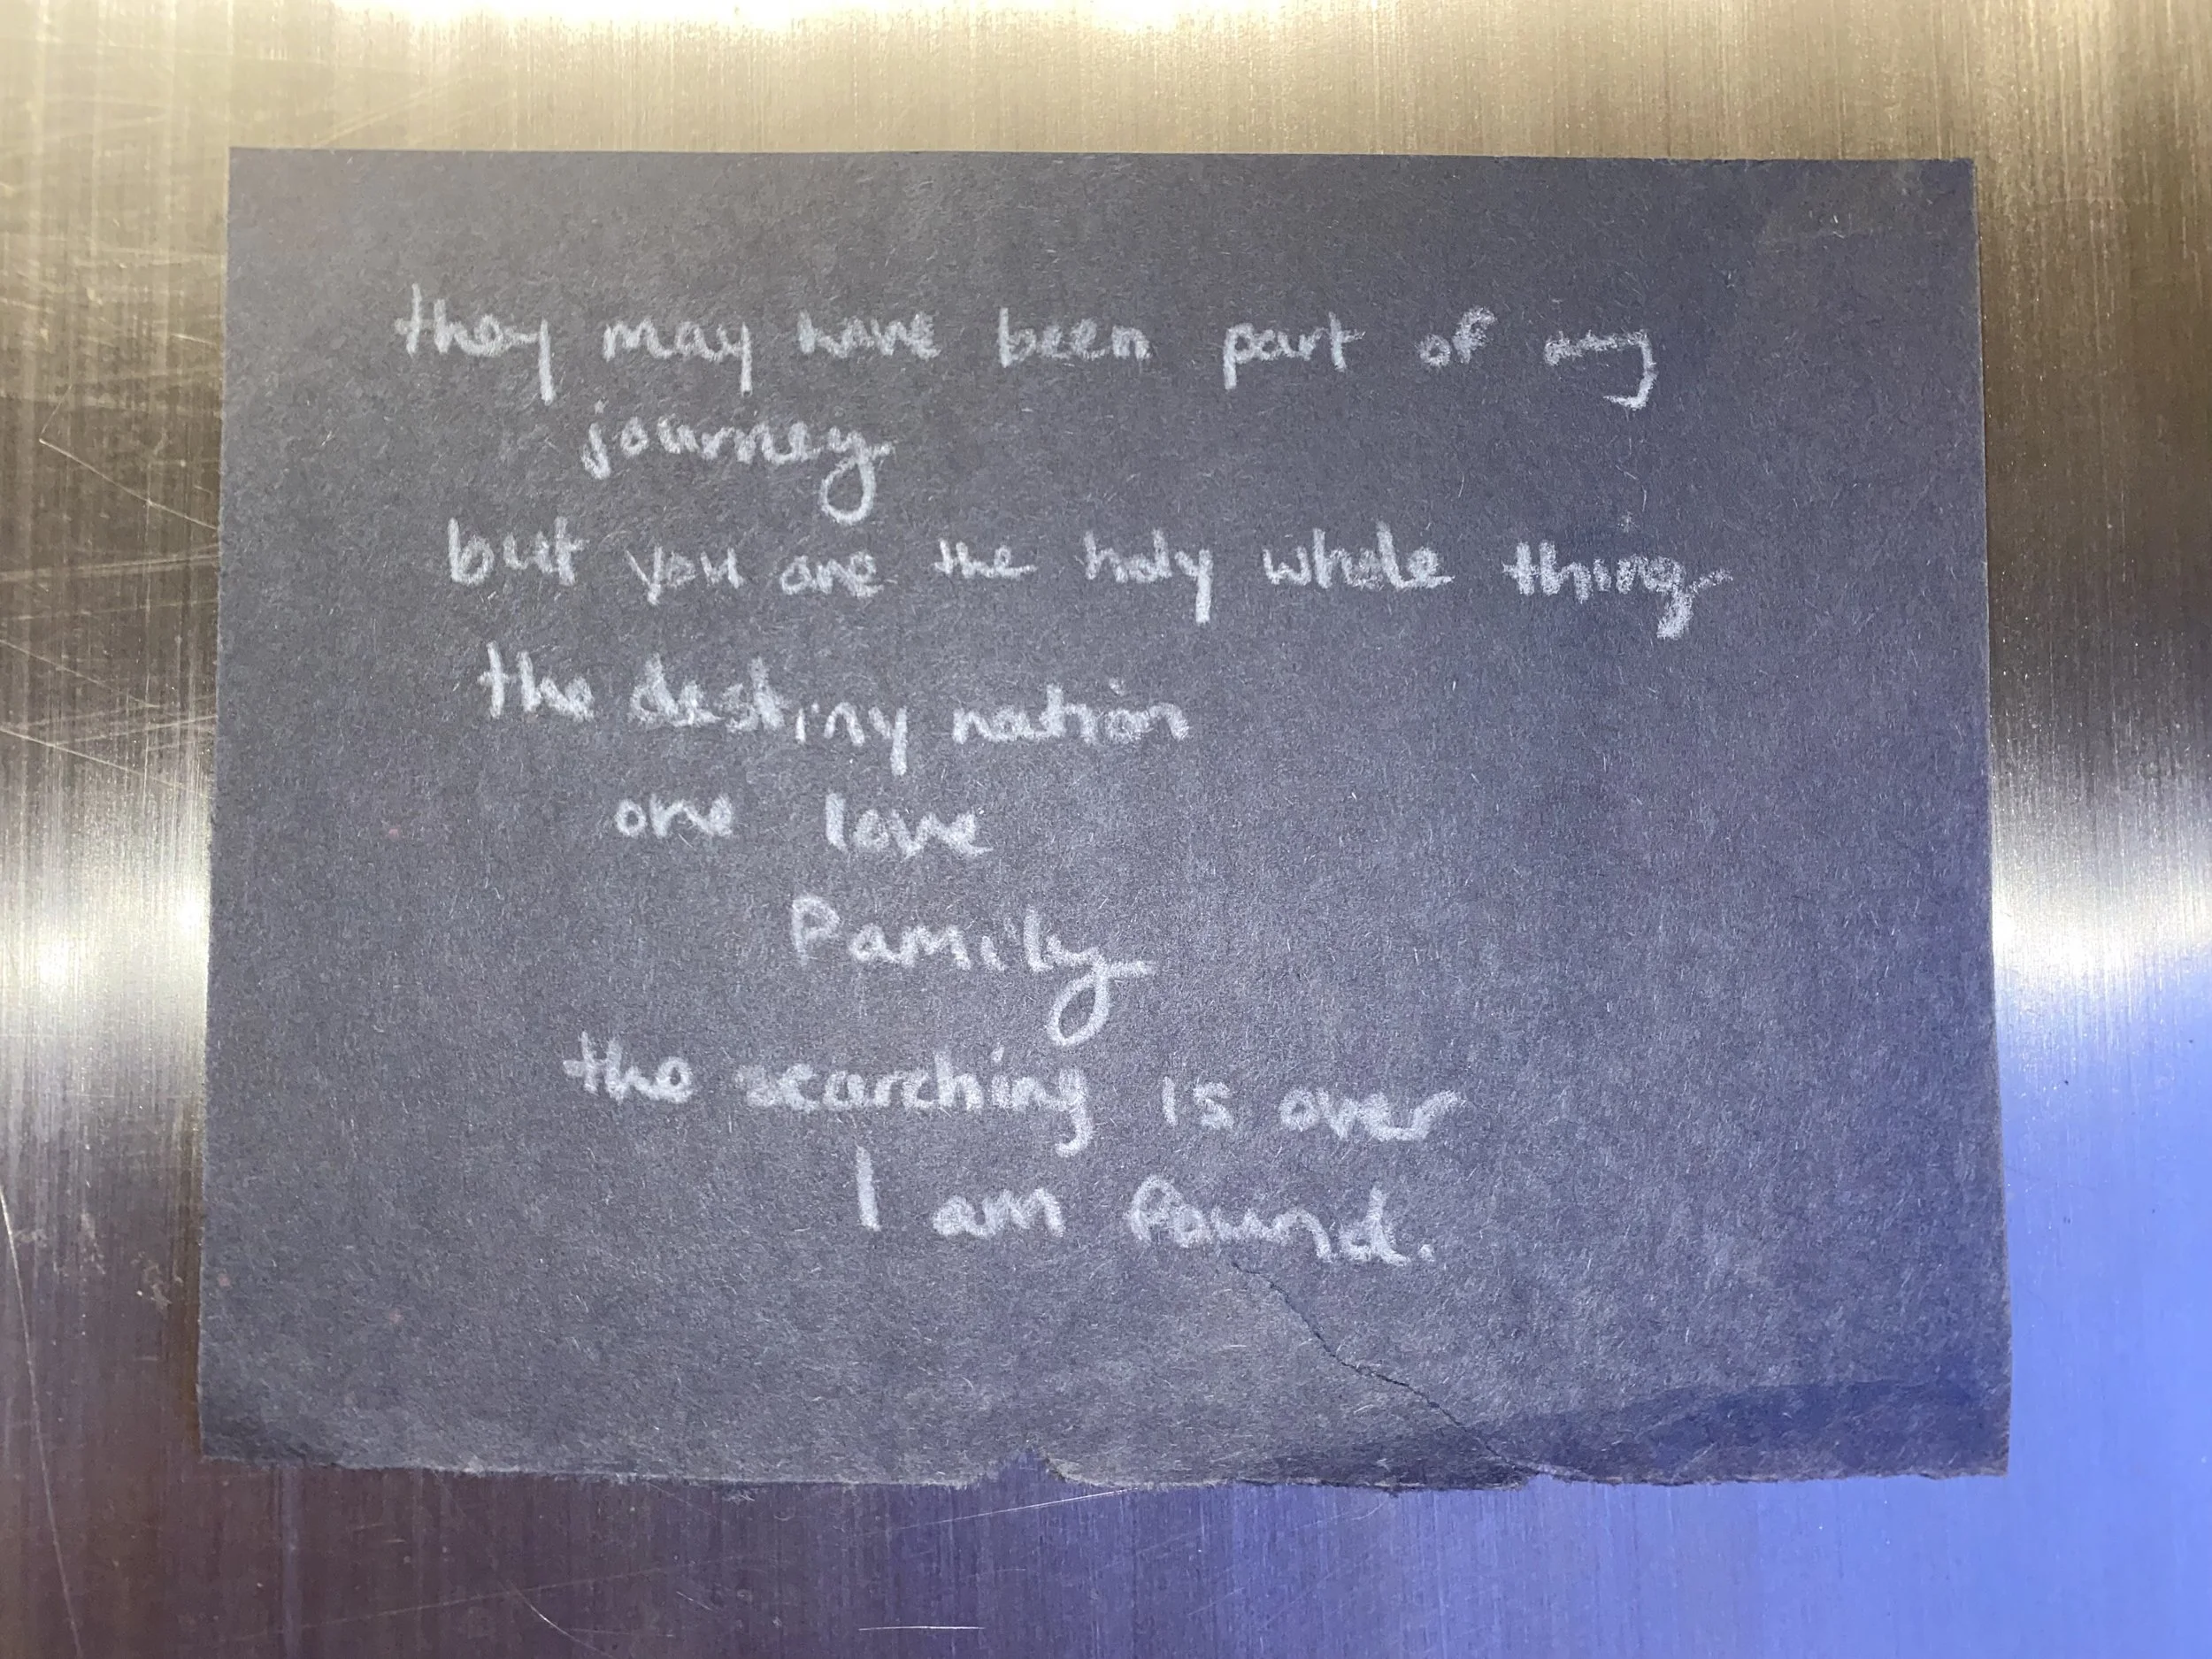 they may have been part of my
journey
but you are the holy whole thing
the destiny nation
one love
Family
the searching is over
I am found.